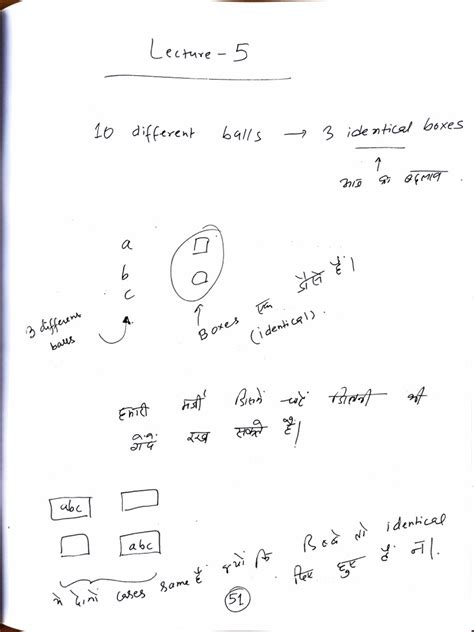 Lecture - 5
10 different balls → 3 identical boxes
↑
a
b
c
3 different balls
↑
Boxes एक जैसे हैं।
(identical).
हमारी मर्जी जितने चाहे जितनी भी
गेंदे रख सकते हैं।
abc
abc
ये दोनों cases same हैं क्यों कि डिब्बे तो identical
51